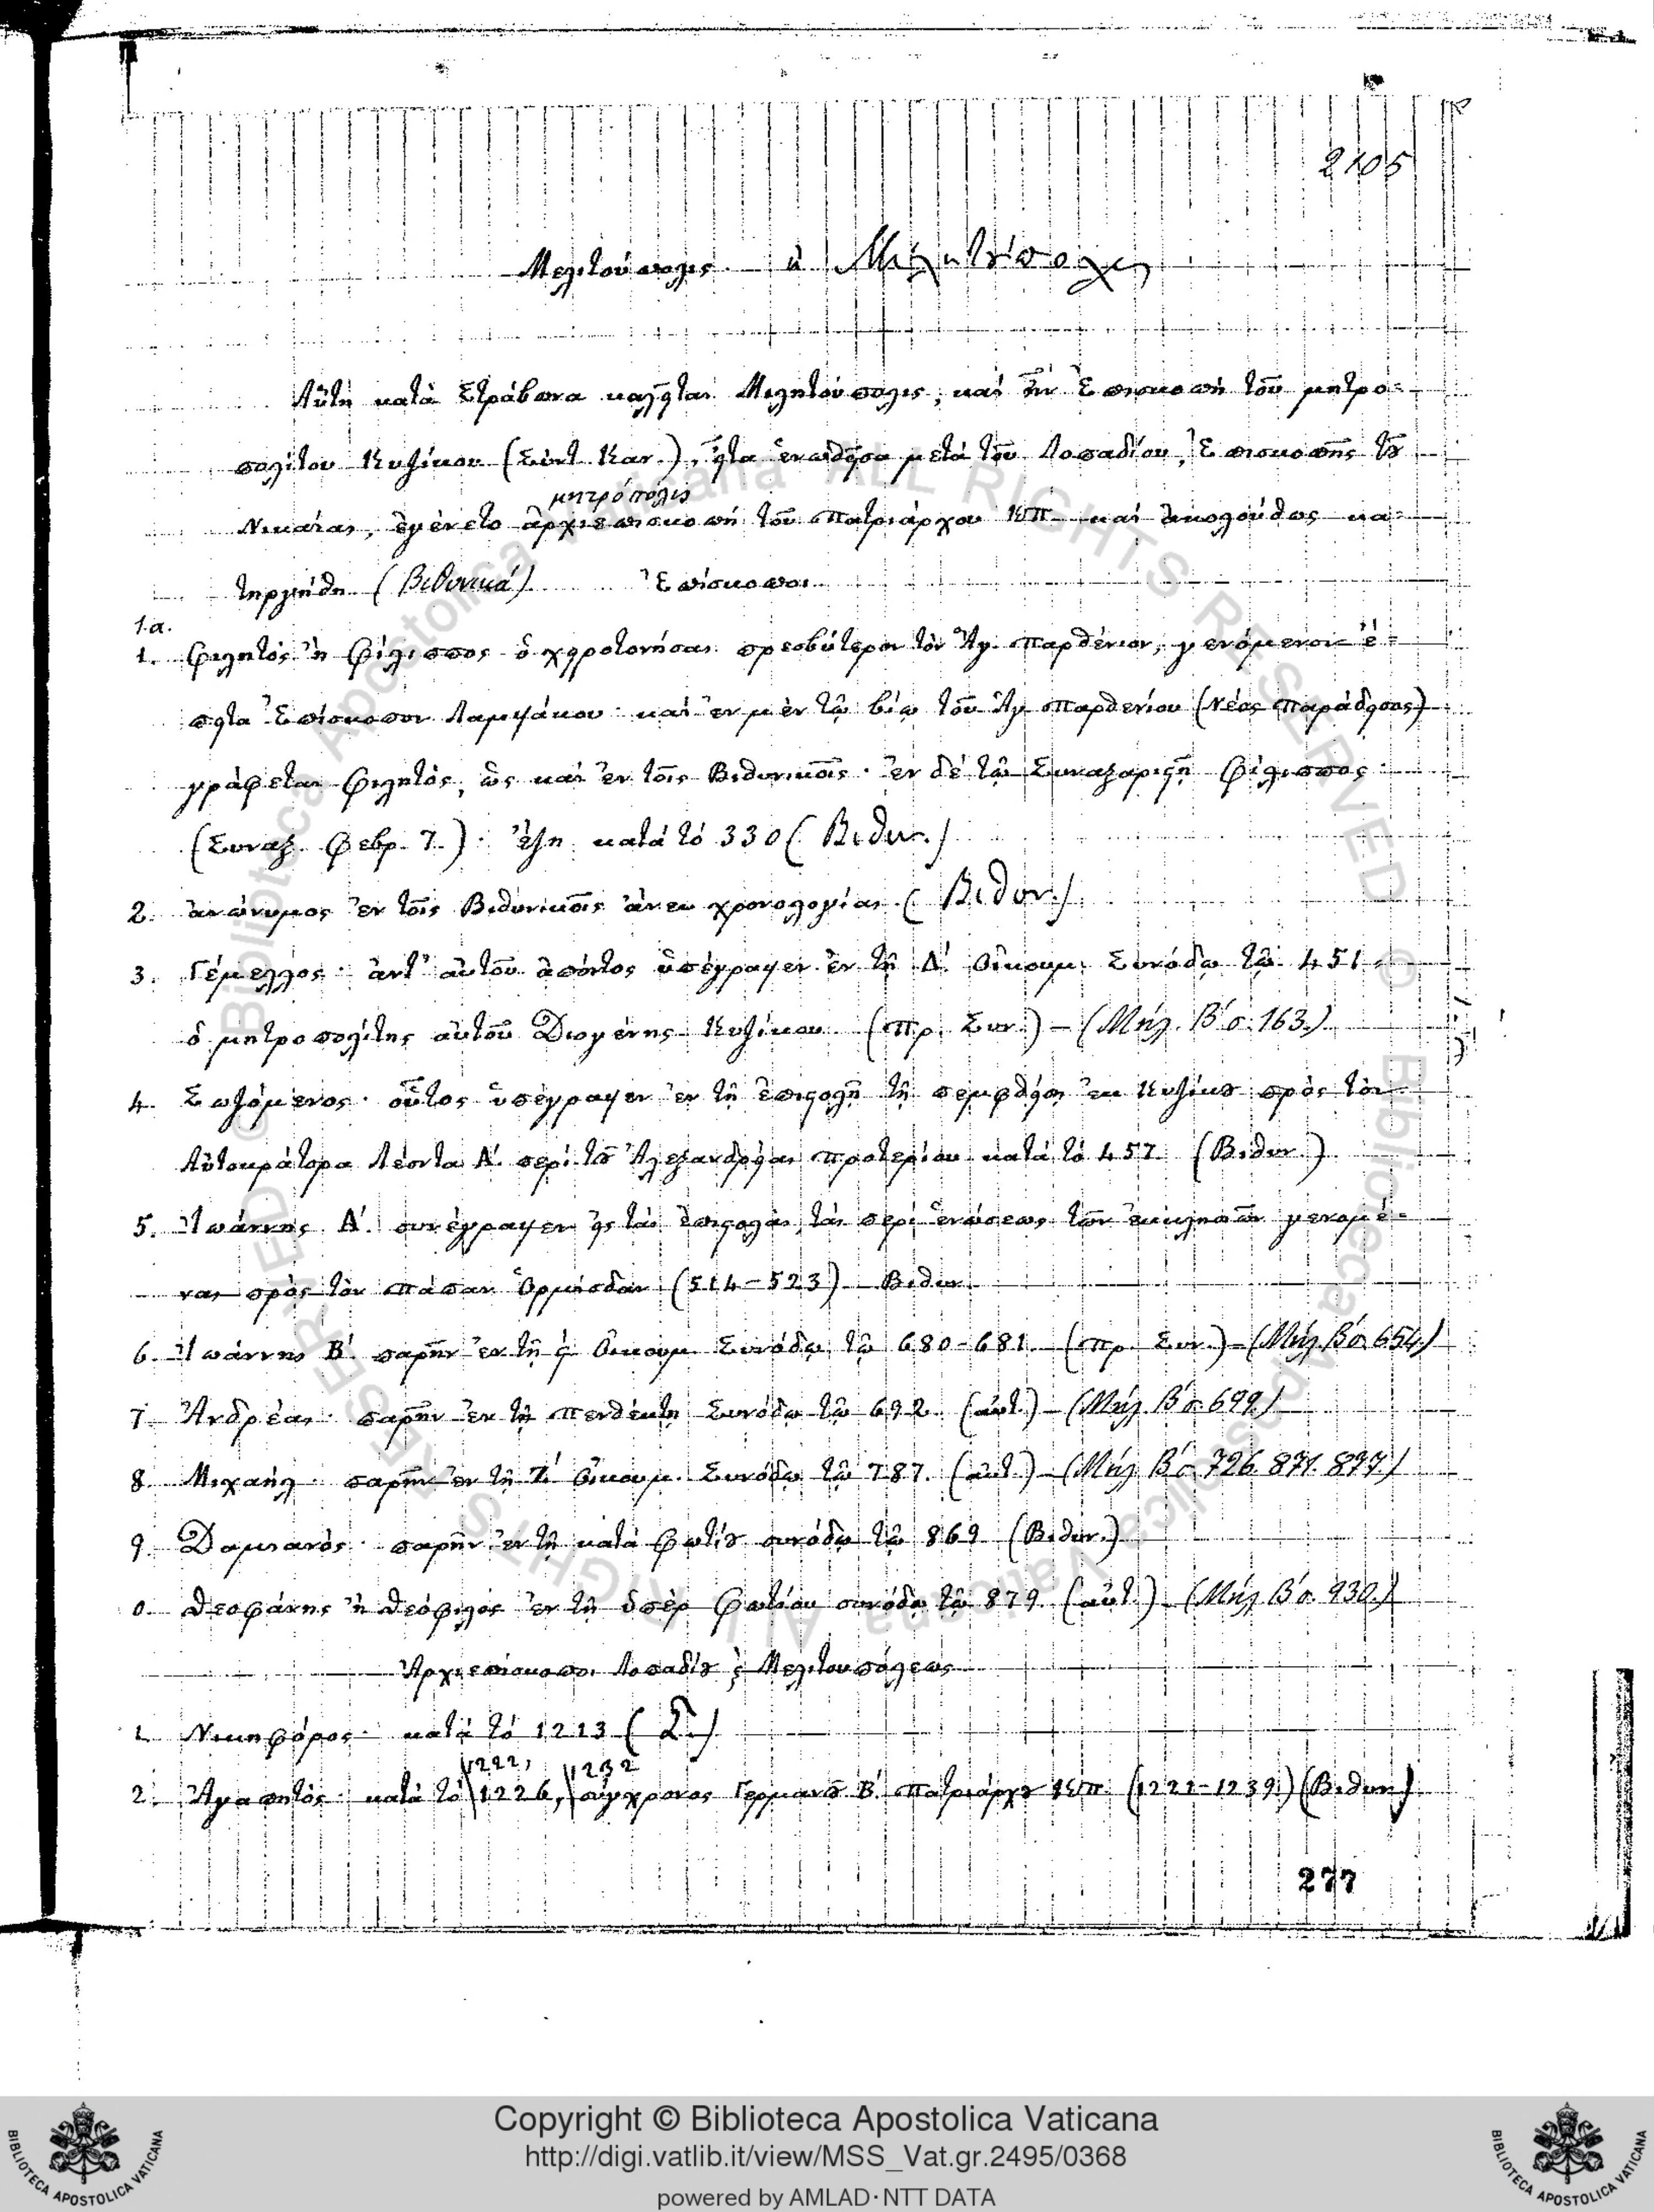 2105
Μελιτούπολις ἢ Μιλητούπολις
Αὕτη κατὰ Στράβωνα καλεῖται Μιλητούπολις, καὶ ἦν Ἐπισκοπὴ τοῦ μητρο-
πολίτου Κυζίκου (Σύντ. Καν.), εἶτα ἑνωθεῖσα μετὰ τοῦ Λοπαδίου, Ἐπισκοπῆς τȣ͂
μητρόπολις
Νικαίας, ἐγένετο ἀρχιεπισκοπὴ τοῦ Πατριάρχου ΚΠ καὶ ἀκολούθως κα-
τηργήθη (Βιθυνικά) Ἐπίσκοποι
1.α.
1. Φιλητὸς ἢ Φίλιππος ὁ χειροτονήσας πρεσβύτερον τὸν Ἅγ. Παρθένιον, γενόμενον ἔ-
πειτα Ἐπίσκοπον Λαμψάκου· καὶ ἐν μὲν τῷ βίῳ τοῦ Ἁγ. Παρθενίου (Νέος Παράδεισος)
γράφεται Φιλητὸς, ὡς καὶ ἐν τοῖς Βιθυνικοῖς· ἐν δὲ τῷ Συναξαριστῇ Φίλιππος·
(Συναξ. Φεβρ. 7.)· ἔζη κατὰ τὸ 330 (Βιθυν.)
2. ἀνώνυμος ἐν τοῖς Βιθυνικοῖς ἄνευ χρονολογίας (Βιθυν.)
3. Γέμελλος· ἀντ' αὐτοῦ ἀπόντος ὑπέγραψεν ἐν τῇ Δ΄. Οἰκουμ. Συνόδῳ τῷ 451
ὁ μητροπολίτης αὐτοῦ Διογένης Κυζίκου (Πρ. Συν.) - (Μήλ. Β΄ σ. 163.)
4. Σωζόμενος· οὗτος ὑπέγραψεν ἐν τῇ ἐπιστολῇ τῇ πεμφθείσῃ ἐκ Κυζίκȣ πρὸς τὸν
Αὐτοκράτορα Λέοντα Α΄. περὶ τȣ͂ Ἀλεξανδρείας Προτερίου κατὰ τὸ 457 (Βιθυν.)
5. Ἰωάννης Α΄. συνέγραψεν εἰς τὰς ἐπιστολὰς τὰς περὶ ἑνώσεως τῶν ἐκκλησιῶν γενομέ-
νας πρὸς τὸν πάπαν Ὁρμίσδαν (514-523) Βιθυν.
6. Ἰωάννης Β΄. παρῆν ἐν τῇ ϛ΄ Οἰκουμ. Συνόδῳ τῷ 680-681. (Πρ. Συν.) - (Μήλ. Β΄ σ. 654.)
7. Ἀνδρέας· παρῆν ἐν τῇ Πενθέκτῃ Συνόδῳ τῷ 692. (αὐτ.) - (Μήλ. Β΄ σ. 699.)
8. Μιχαήλ· παρῆν ἐν τῇ Ζ΄ Οἰκουμ. Συνόδῳ τῷ 787. (αὐτ.) - (Μήλ. Β΄ σ. 726. 871. 897.)
9. Δαμιανός· παρῆν ἐν τῇ κατὰ Φωτίȣ συνόδῳ τῷ 869 (Βιθυν.)
0. Θεοφάνης ἢ Θεόφιλος ἐν τῇ ὑπὲρ Φωτίου συνόδῳ τῷ 879. (αὐτ.) - (Μήλ. Β΄ σ. 930.)
Ἀρχιεπίσκοποι Λοπαδίȣ ϗ Μελιτουπόλεως
1. Νικηφόρος· κατὰ τὸ 1213 (Σ.)
1222, 1232
2. Ἀγαπητός· κατὰ τὸ 1226, σύγχρονος Γερμανȣ͂ Β΄. Πατριάρχȣ ΚΠ. (1222-1239.) (Βιθυν.)
277
Copyright © Biblioteca Apostolica Vaticana
http://digi.vatlib.it/view/MSS_Vat.gr.2495/0368
powered by AMLAD·NTT DATA